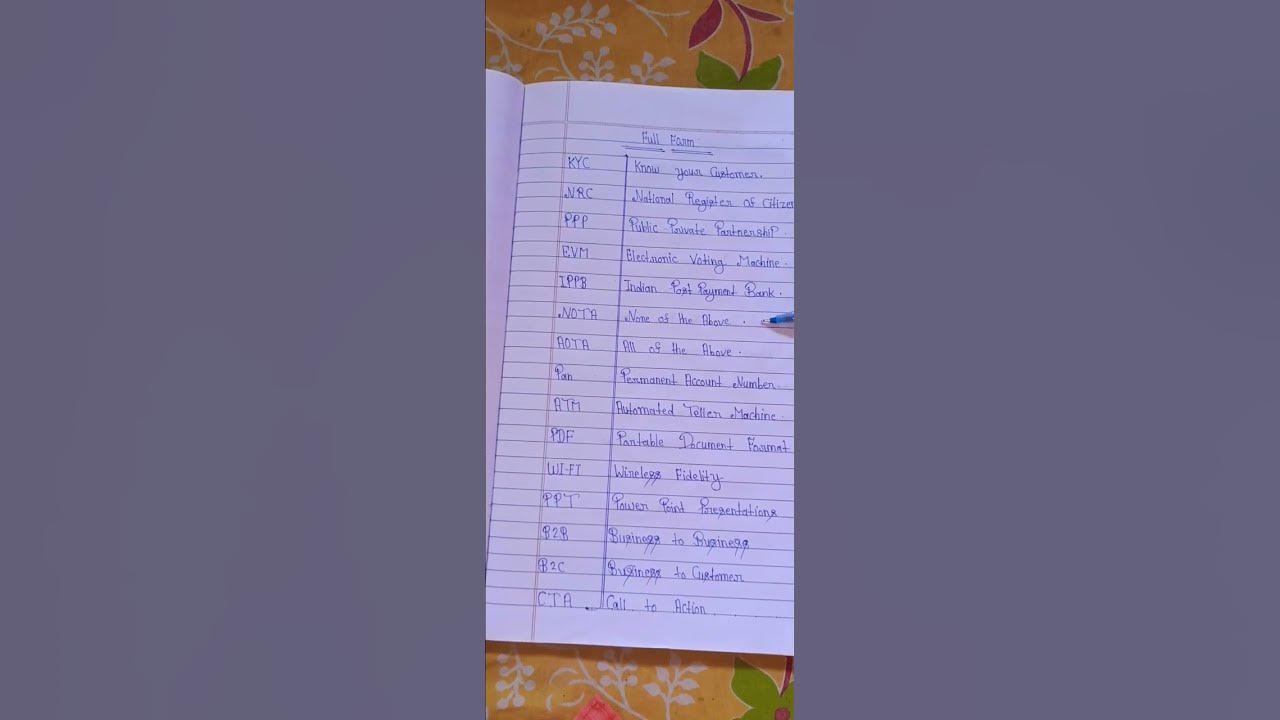 Full Form
KYC Know your Customer.
NRC National Register of Citizen
PPP Public Private Partnership.
EVM Electronic Voting Machine.
IPPB Indian Post Payment Bank.
NOTA None of the Above.
AOTA All of the Above.
Pan Permanent Account Number.
ATM Automated Teller Machine.
PDF Portable Document Format
WI-FI Wireless Fidelity
PPT Power Point Presentations
B2B Business to Business
B2C Business to Customer
CTA Call to Action